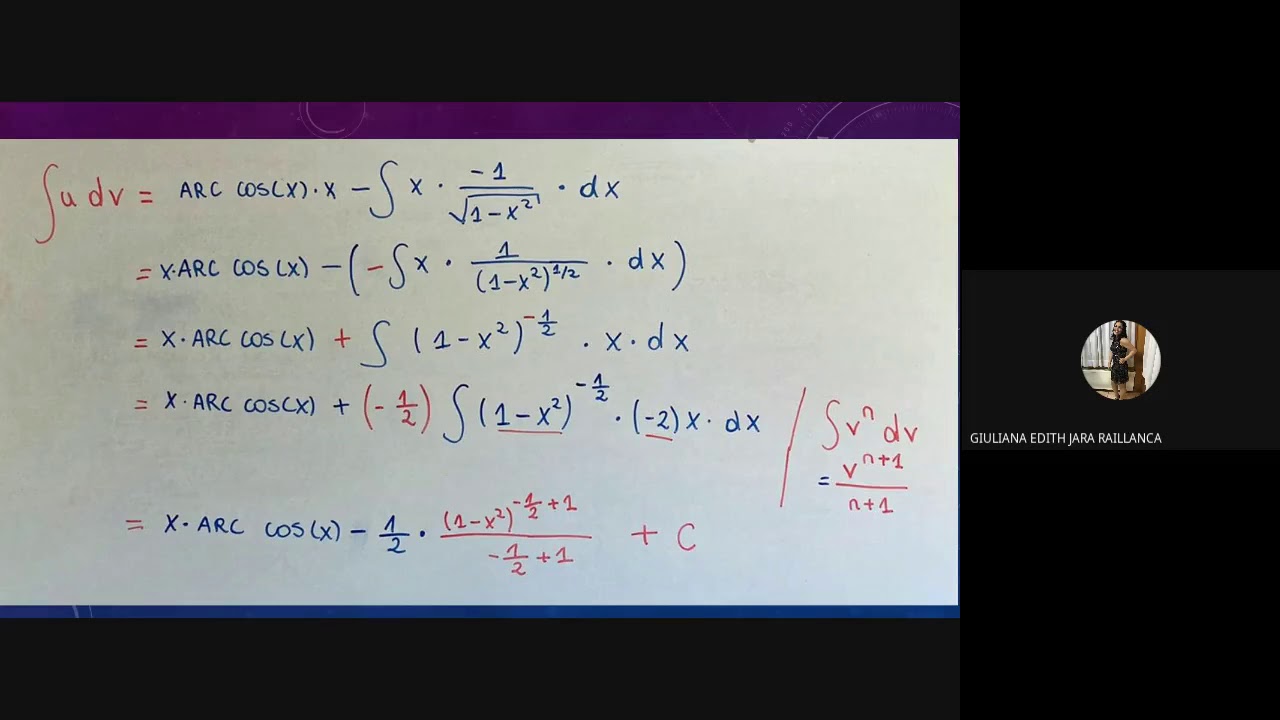 ∫u dv = ARC COS(X)·X − ∫ X · −1/√(1−X²) · dX
= X·ARC COS(X) − (−∫ X · 1/(1−X²)^1/2 · dX)
= X·ARC COS(X) + ∫ (1−X²)^−1/2 · X·dX
= X·ARC COS(X) + (−1/2) ∫ (1−X²)^−1/2 · (−2)X·dX / ∫vⁿ dv
= v^n+1/n+1
= X·ARC COS(X) − 1/2 · (1−X²)^−1/2+1/−1/2+1 + C
GIULIANA EDITH JARA RAILLANCA